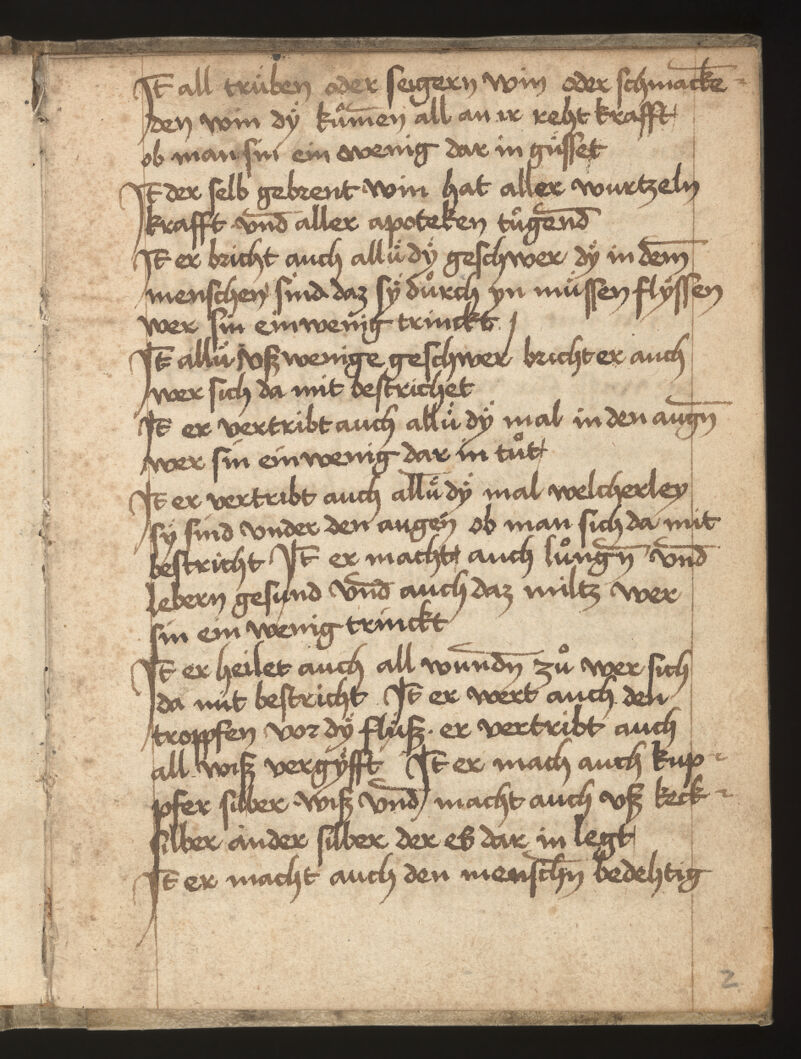 It̄ all trüben oder seigern win oder schmacke-
den win dÿ kůmen all an ir reht krafft
ob man sin ein wenig dar in güsset
It̄ der selb gebrent win hat aller wurtzeln
krafft vnd̄ aller apoteken tůgend̄
It̄ er bricht auch allü dÿ geschwer dÿ in dem̄
menschen sind daz sÿ důrch yn müssen flÿssen
wer sin ein wenig trinckt
It̄ allü vsz wenige geschwer bricht er auch
wer sich da mit bestrichet
It̄ er vertribt auch allü dÿ mal in den augn̄
wer sin ein wenig dar in tůt
It̄ er vertribt auch allü dÿ mal welcherley
sÿ sind vnder den augen ob man sich da mit
bestricht It̄ er macht auch lůngn̄ vnd̄
lebern gesund vnd̄ auch daz miltz wer
sin ein wenig trinckt
It̄ er heilet auch all wundn̄ zů wer sich
da mit bestricht It̄ er wert auch den
troppfen vor dÿ flüsz · er vertribt auch
all wisz vergÿfft It̄ er mach auch kup-
pfer silber wisz vnd̄ macht auch vsz keck-
silber ander silber der es dar in legt
It̄ er macht auch den menschn̄ bedehtig
2